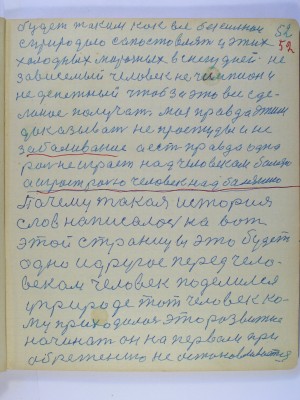 будет таким как все безсилном 52
с природаю сапоставят у этих 52
холодных морозных в снегу дней не
зависемый человек не чи
и не денежный чтоб за это все зде-
ланое получат моя правда этим
даказывает не простуды и не
забаливание а ест правда одно
рол не играет над человекам
а играет ролю человек над
Почему такая история
слов написалос на вот
этой страницы это будет
одно и другое перед чело-
векам человек поделился
у природе тот человек ко-
му приходилос это развитие
начинат он на первом при
обретению не остановливается